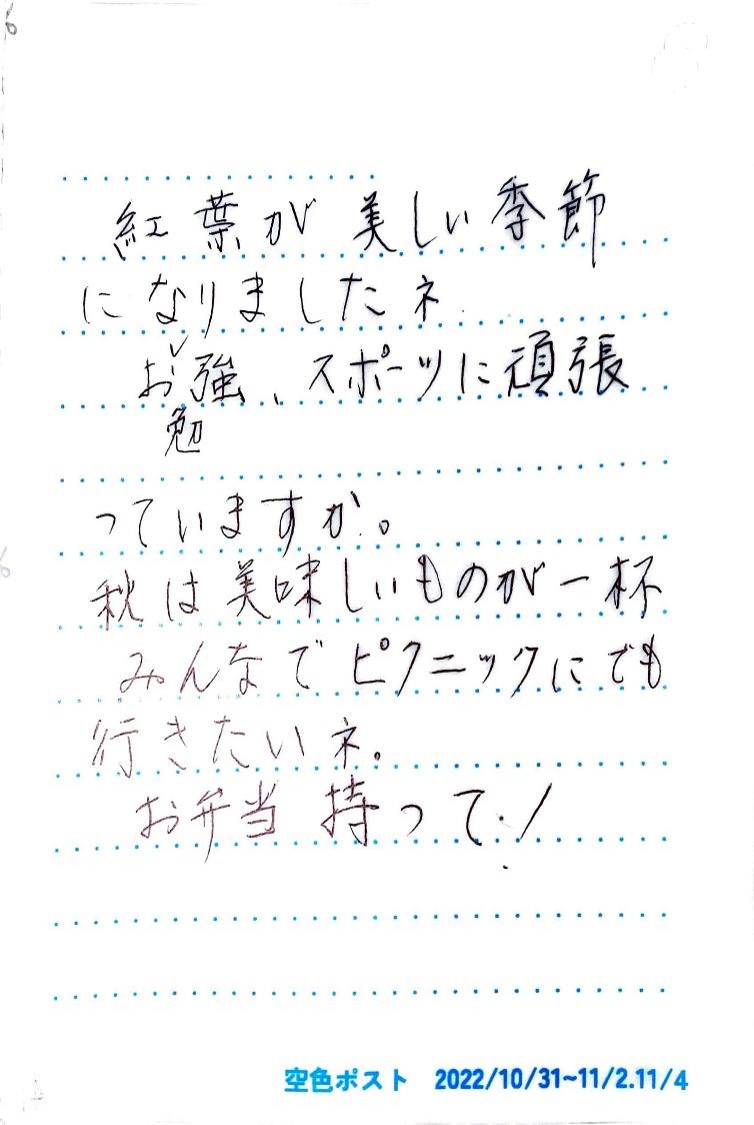 紅葉が美しい季節
になりましたネ
お勉強、スポーツに頑張
っていますか。
秋は美味しいものが一杯
みんなでピクニックにでも
行きたいネ。
お弁当持って!
空色ポスト 2022/10/31~11/2.11/4